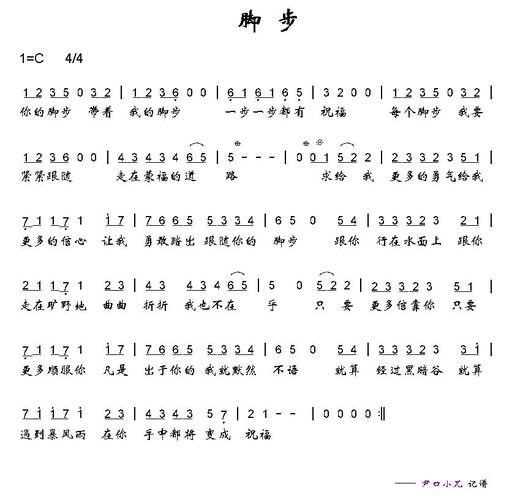 脚 步
1=C 4/4
1 2 3 5 0 3 2 | 1 2 3 6 0 0 | 6 1 6 1 6 5 | 3 2 0 0 | 1 2 3 5 0 3 2 |
你的脚步 带着 我的脚步 一步一步都有 祝福 每个脚步 我要
1 2 3 6 0 0 | 4 3 4 3 4 6 5 | 5 - - - | 0 0 1 5 2 2 | 2 3 3 2 2 3 5 1 |
紧紧跟随 走在蒙福的道 路 求给 我 更多的勇气给我
7 1 1 7 1 1 7 | 7 6 6 5 5 3 3 4 | 6 5 0 5 4 | 3 3 2 2 3 2 1 |
更多的信心 让我 勇敢踏出 跟随你的 脚步 跟你 行在水面上 跟你
2 1 1 7 1 2 3 | 4 3 4 3 4 6 5 | 5 0 5 2 2 | 2 3 3 2 2 3 5 1 |
走在旷野地 曲曲 折折 我也不在 乎 只 要 更多信靠你 只要
7 1 1 7 1 1 7 | 7 6 6 5 5 3 3 4 | 6 5 0 5 4 | 3 3 2 2 3 3 1 |
更多顺服你 凡是 出于你的 我就默然 不语 就算 经过黑暗谷 就算
7 1 1 7 1 2 3 | 4 3 4 4 3 5 7 | 2 1 - - | 0 0 0 0 :||
遇到暴风雨 在你 手中都将 变成 祝福
—— 尹口小兀 记谱